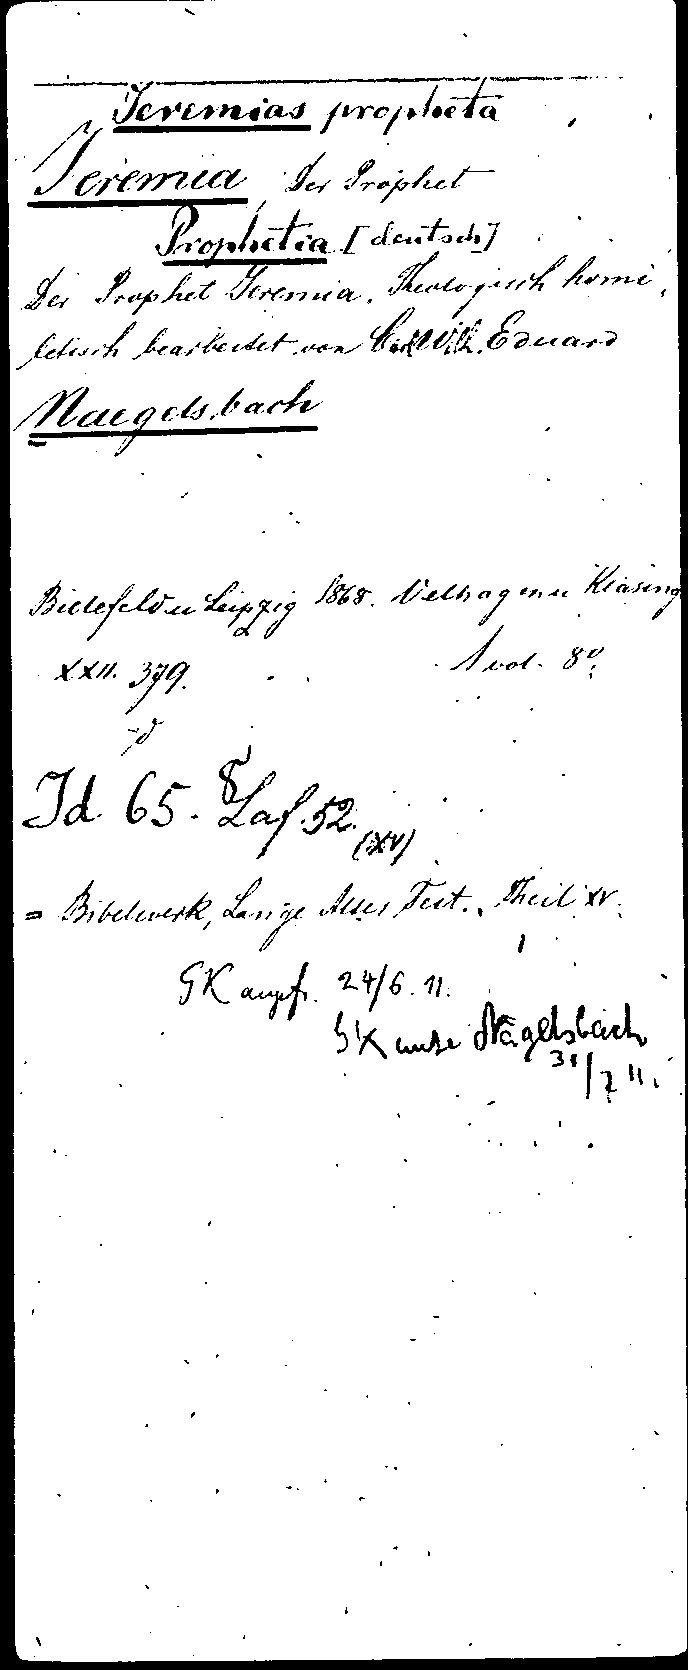 Jeremias propheta
Jeremia, Der Prophet
Prophetia [deutsch]
Der Prophet Jeremia. Theologisch homi-
letisch bearbeitet von Carl Wilh. Eduard
Naegelsbach
Bielefeld u Leipzig 1868. Velhagen u Klasing
XXII. 379. 1 vol. 8°.
Id 65. 8 Laf. 52.
(XV)
= Bibelwerk, Lange Altes Test., Theil XV.
GK angefr. 24/6. 11.
GK unter Nägelsbach
31/7 11.